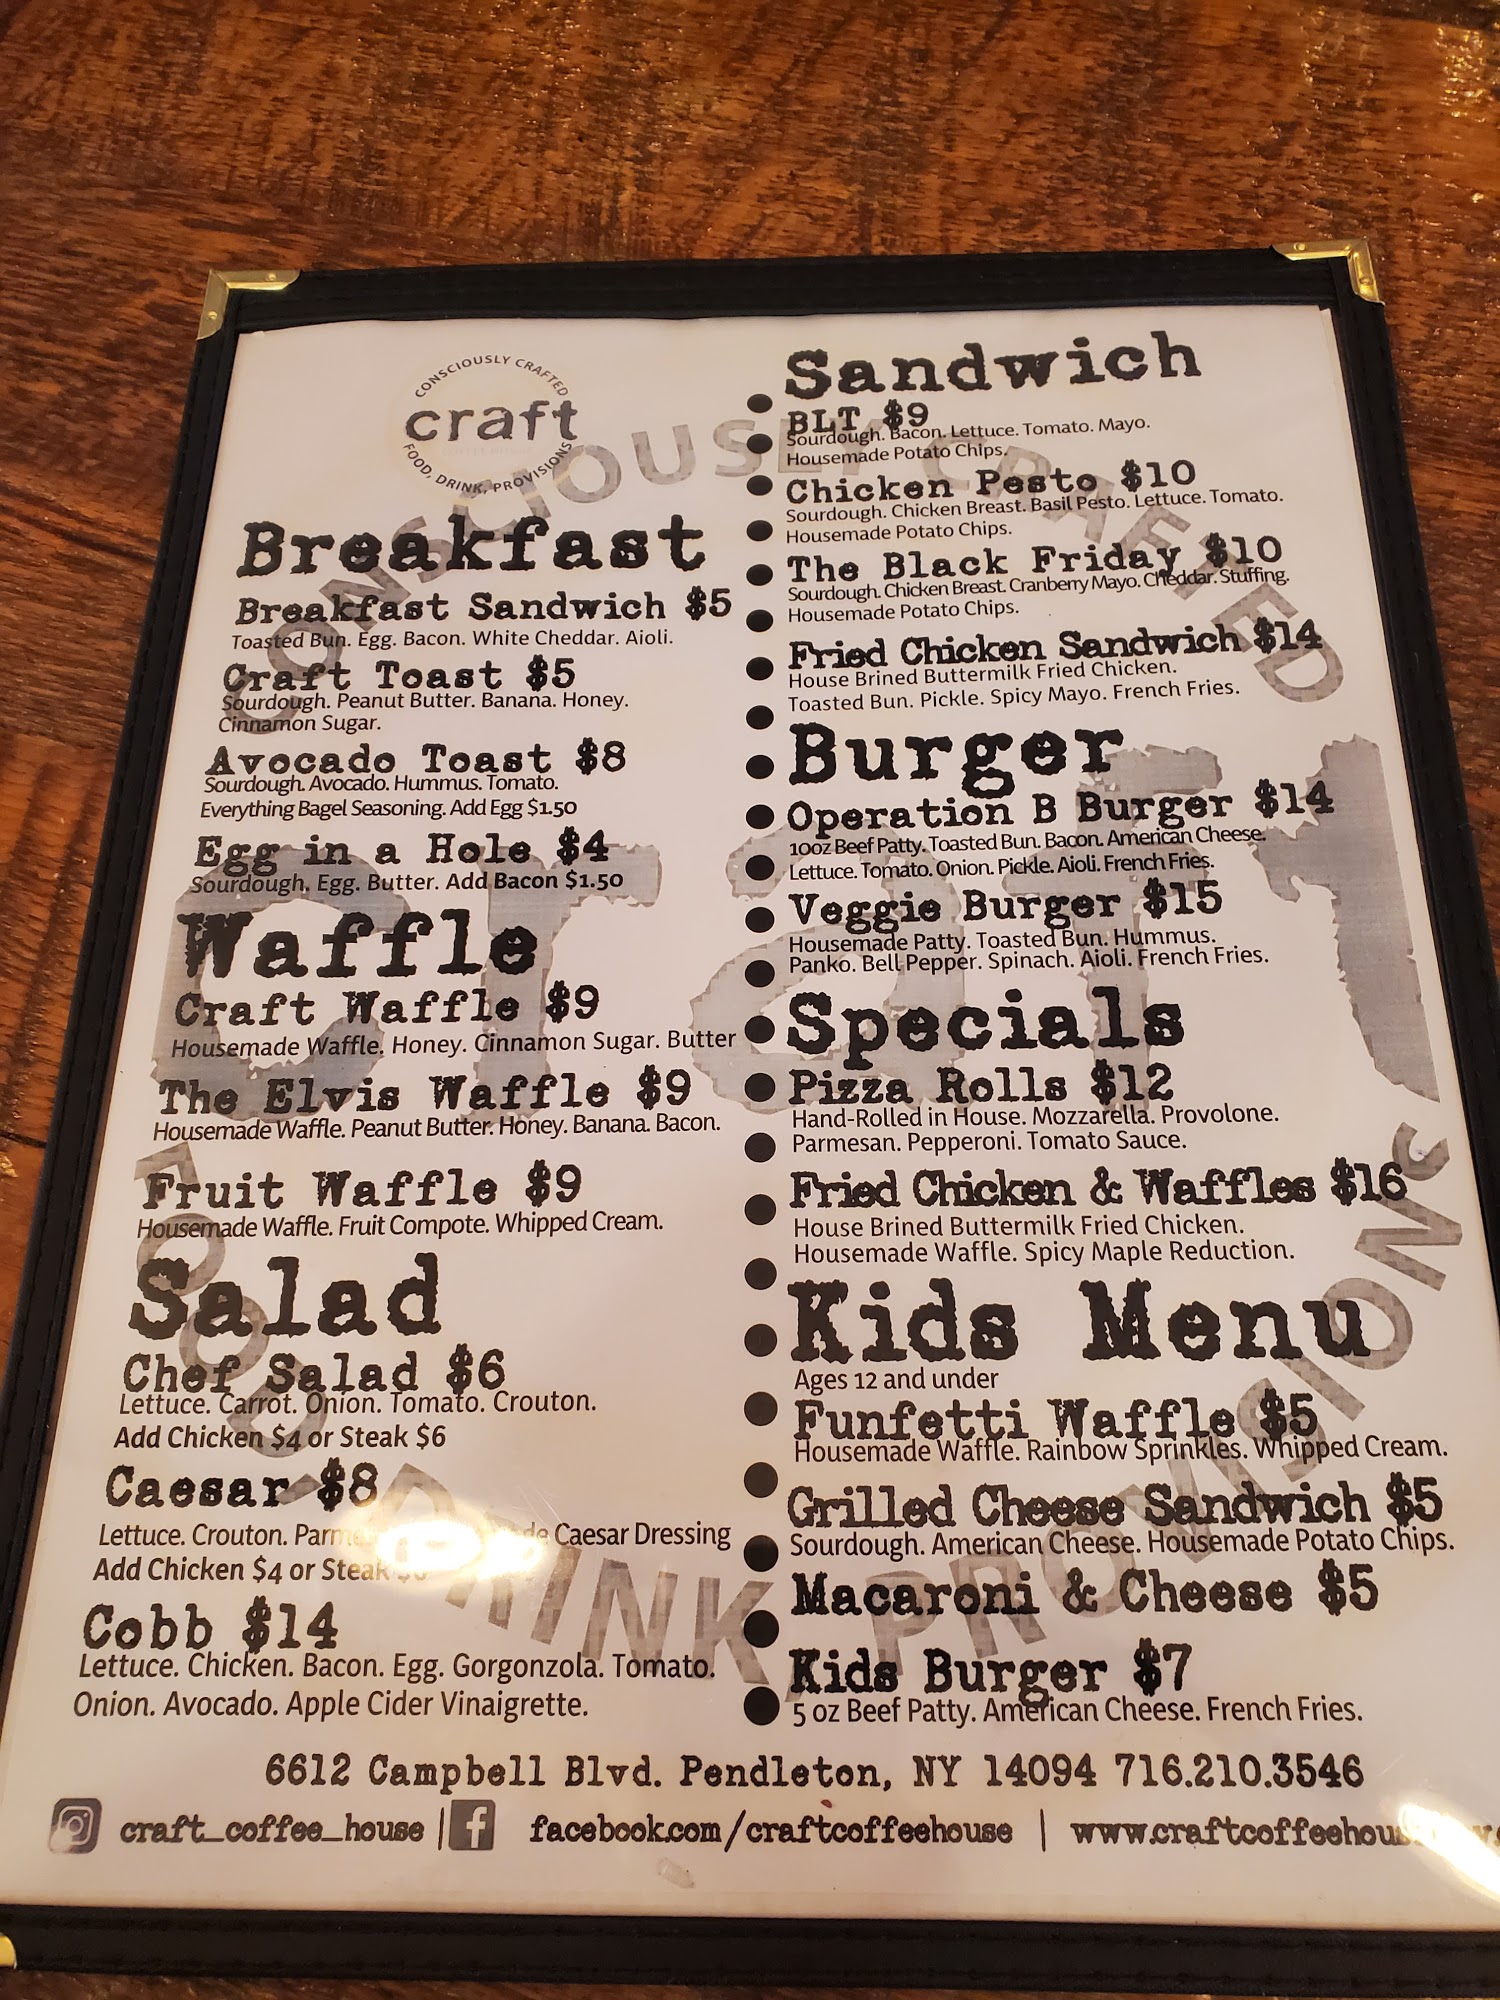 CONSCIOUSLY CRAFTED
craft
FOOD, DRINK, PROVISIONS
Breakfast
Breakfast Sandwich $5
Toasted Bun. Egg. Bacon. White Cheddar. Aioli.
Craft Toast $5
Sourdough. Peanut Butter. Banana. Honey.
Cinnamon Sugar.
Avocado Toast $8
Sourdough. Avocado. Hummus. Tomato.
Everything Bagel Seasoning. Add Egg $1.50
Egg in a Hole $4
Sourdough. Egg. Butter. Add Bacon $1.50
Waffle
Craft Waffle $9
Housemade Waffle. Honey. Cinnamon Sugar. Butter
The Elvis Waffle $9
Housemade Waffle. Peanut Butter. Honey. Banana. Bacon.
Fruit Waffle $9
Housemade Waffle. Fruit Compote. Whipped Cream.
Salad
Chef Salad $6
Lettuce. Carrot. Onion. Tomato. Crouton.
Add Chicken $4 or Steak $6
Caesar $8
Lettuce. Crouton. Caesar Dressing
Add Chicken $4 or Steak
Cobb $14
Lettuce. Chicken. Bacon. Egg. Gorgonzola. Tomato.
Onion. Avocado. Apple Cider Vinaigrette.
Sandwich
BLT $9
Sourdough. Bacon. Lettuce. Tomato. Mayo.
Housemade Potato Chips.
Chicken Pesto $10
Sourdough. Chicken Breast. Basil Pesto. Lettuce. Tomato.
Housemade Potato Chips.
The Black Friday $10
Sourdough. Chicken Breast. Cranberry Mayo. Cheddar. Stuffing.
Housemade Potato Chips.
Fried Chicken Sandwich $14
House Brined Buttermilk Fried Chicken.
Toasted Bun. Pickle. Spicy Mayo. French Fries.
Burger
Operation B Burger $14
10oz Beef Patty. Toasted Bun. Bacon. American Cheese.
Lettuce. Tomato. Onion. Pickle. Aioli. French Fries.
Veggie Burger $15
Housemade Patty. Toasted Bun. Hummus.
Panko. Bell Pepper. Spinach. Aioli. French Fries.
Specials
Pizza Rolls $12
Hand-Rolled in House. Mozzarella. Provolone.
Parmesan. Pepperoni. Tomato Sauce.
Fried Chicken & Waffles $16
House Brined Buttermilk Fried Chicken.
Housemade Waffle. Spicy Maple Reduction.
Kids Menu
Ages 12 and under
Funfetti Waffle $5
Housemade Waffle. Rainbow Sprinkles. Whipped Cream.
Grilled Cheese Sandwich $5
Sourdough. American Cheese. Housemade Potato Chips.
Macaroni & Cheese $5
Kids Burger $7
5 oz Beef Patty. American Cheese. French Fries.
CONSCIOUSLY CRAFTED
craft
FOOD, DRINK, PROVISIONS
6612 Campbell Blvd. Pendleton, NY 14094 716.210.3546
craft_coffee_house | facebook.com/craftcoffeehouse |